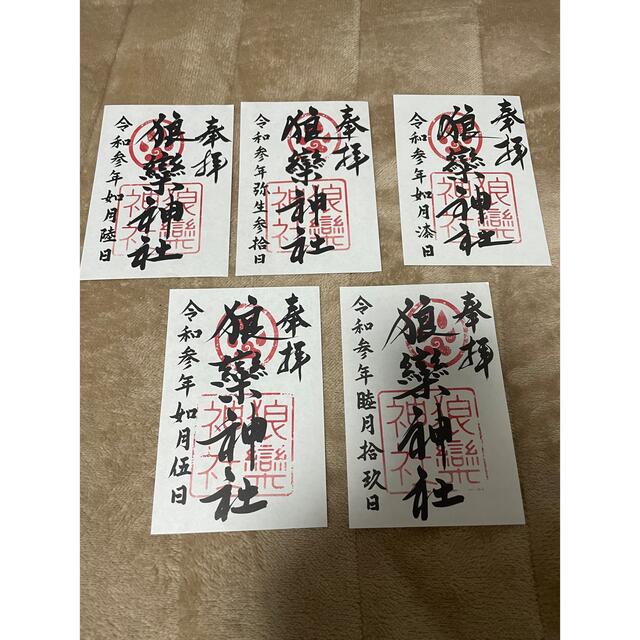 奉拝
狼欒神社
令和参年如月陸日
奉拝
狼欒神社
令和参年弥生参拾日
奉拝
狼欒神社
令和参年如月漆日
奉拝
狼欒神社
令和参年如月伍日
奉拝
狼欒神社
令和参年睦月拾玖日